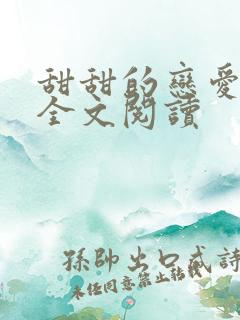 甜甜的戀愛
全文閱讀
孫帥出口成詩
未经同意禁止转载